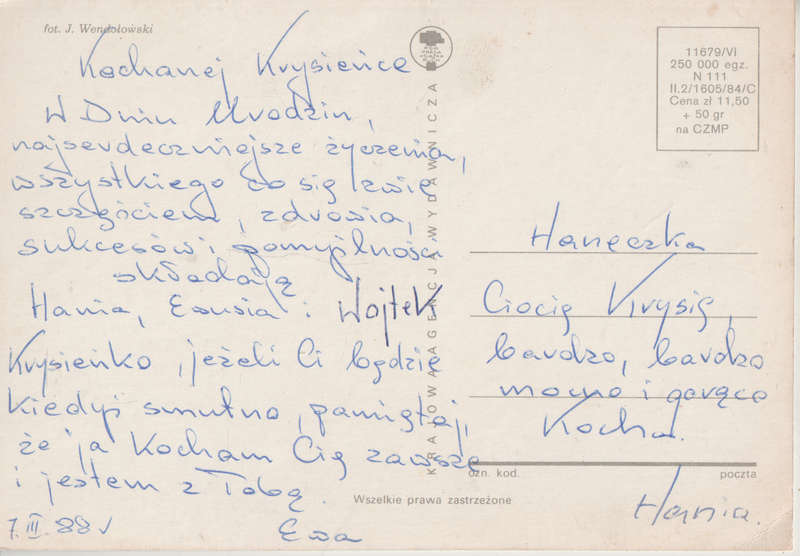 fot. J. Wendołowski
Kochanej Krysieńce
W Dniu Urodzin,
najserdeczniejsze życzenia,
wszystkiego co się zwie
szczęściem, zdrowia,
sukcesów i pomyślności
składają
Hania, Ewusia i Wojtek
Krysieńko, jeżeli Ci będzie
kiedyś smutno, pamiętaj,
że ja Kocham Cię zawsze
i jestem z Tobą.
7.III.88r
Ewa
KRAJOWA AGENCJA WYDAWNICZA
11679/VI
250 000 egz.
N 111
II.2/1605/84/C
Cena zł 11,50
+ 50 gr
na CZMP
Haneczka
Ciocię Krysię,
bardzo, bardzo
mocno i gorąco
Kocha.
ozn. kod. poczta
Hania.
Wszelkie prawa zastrzeżone